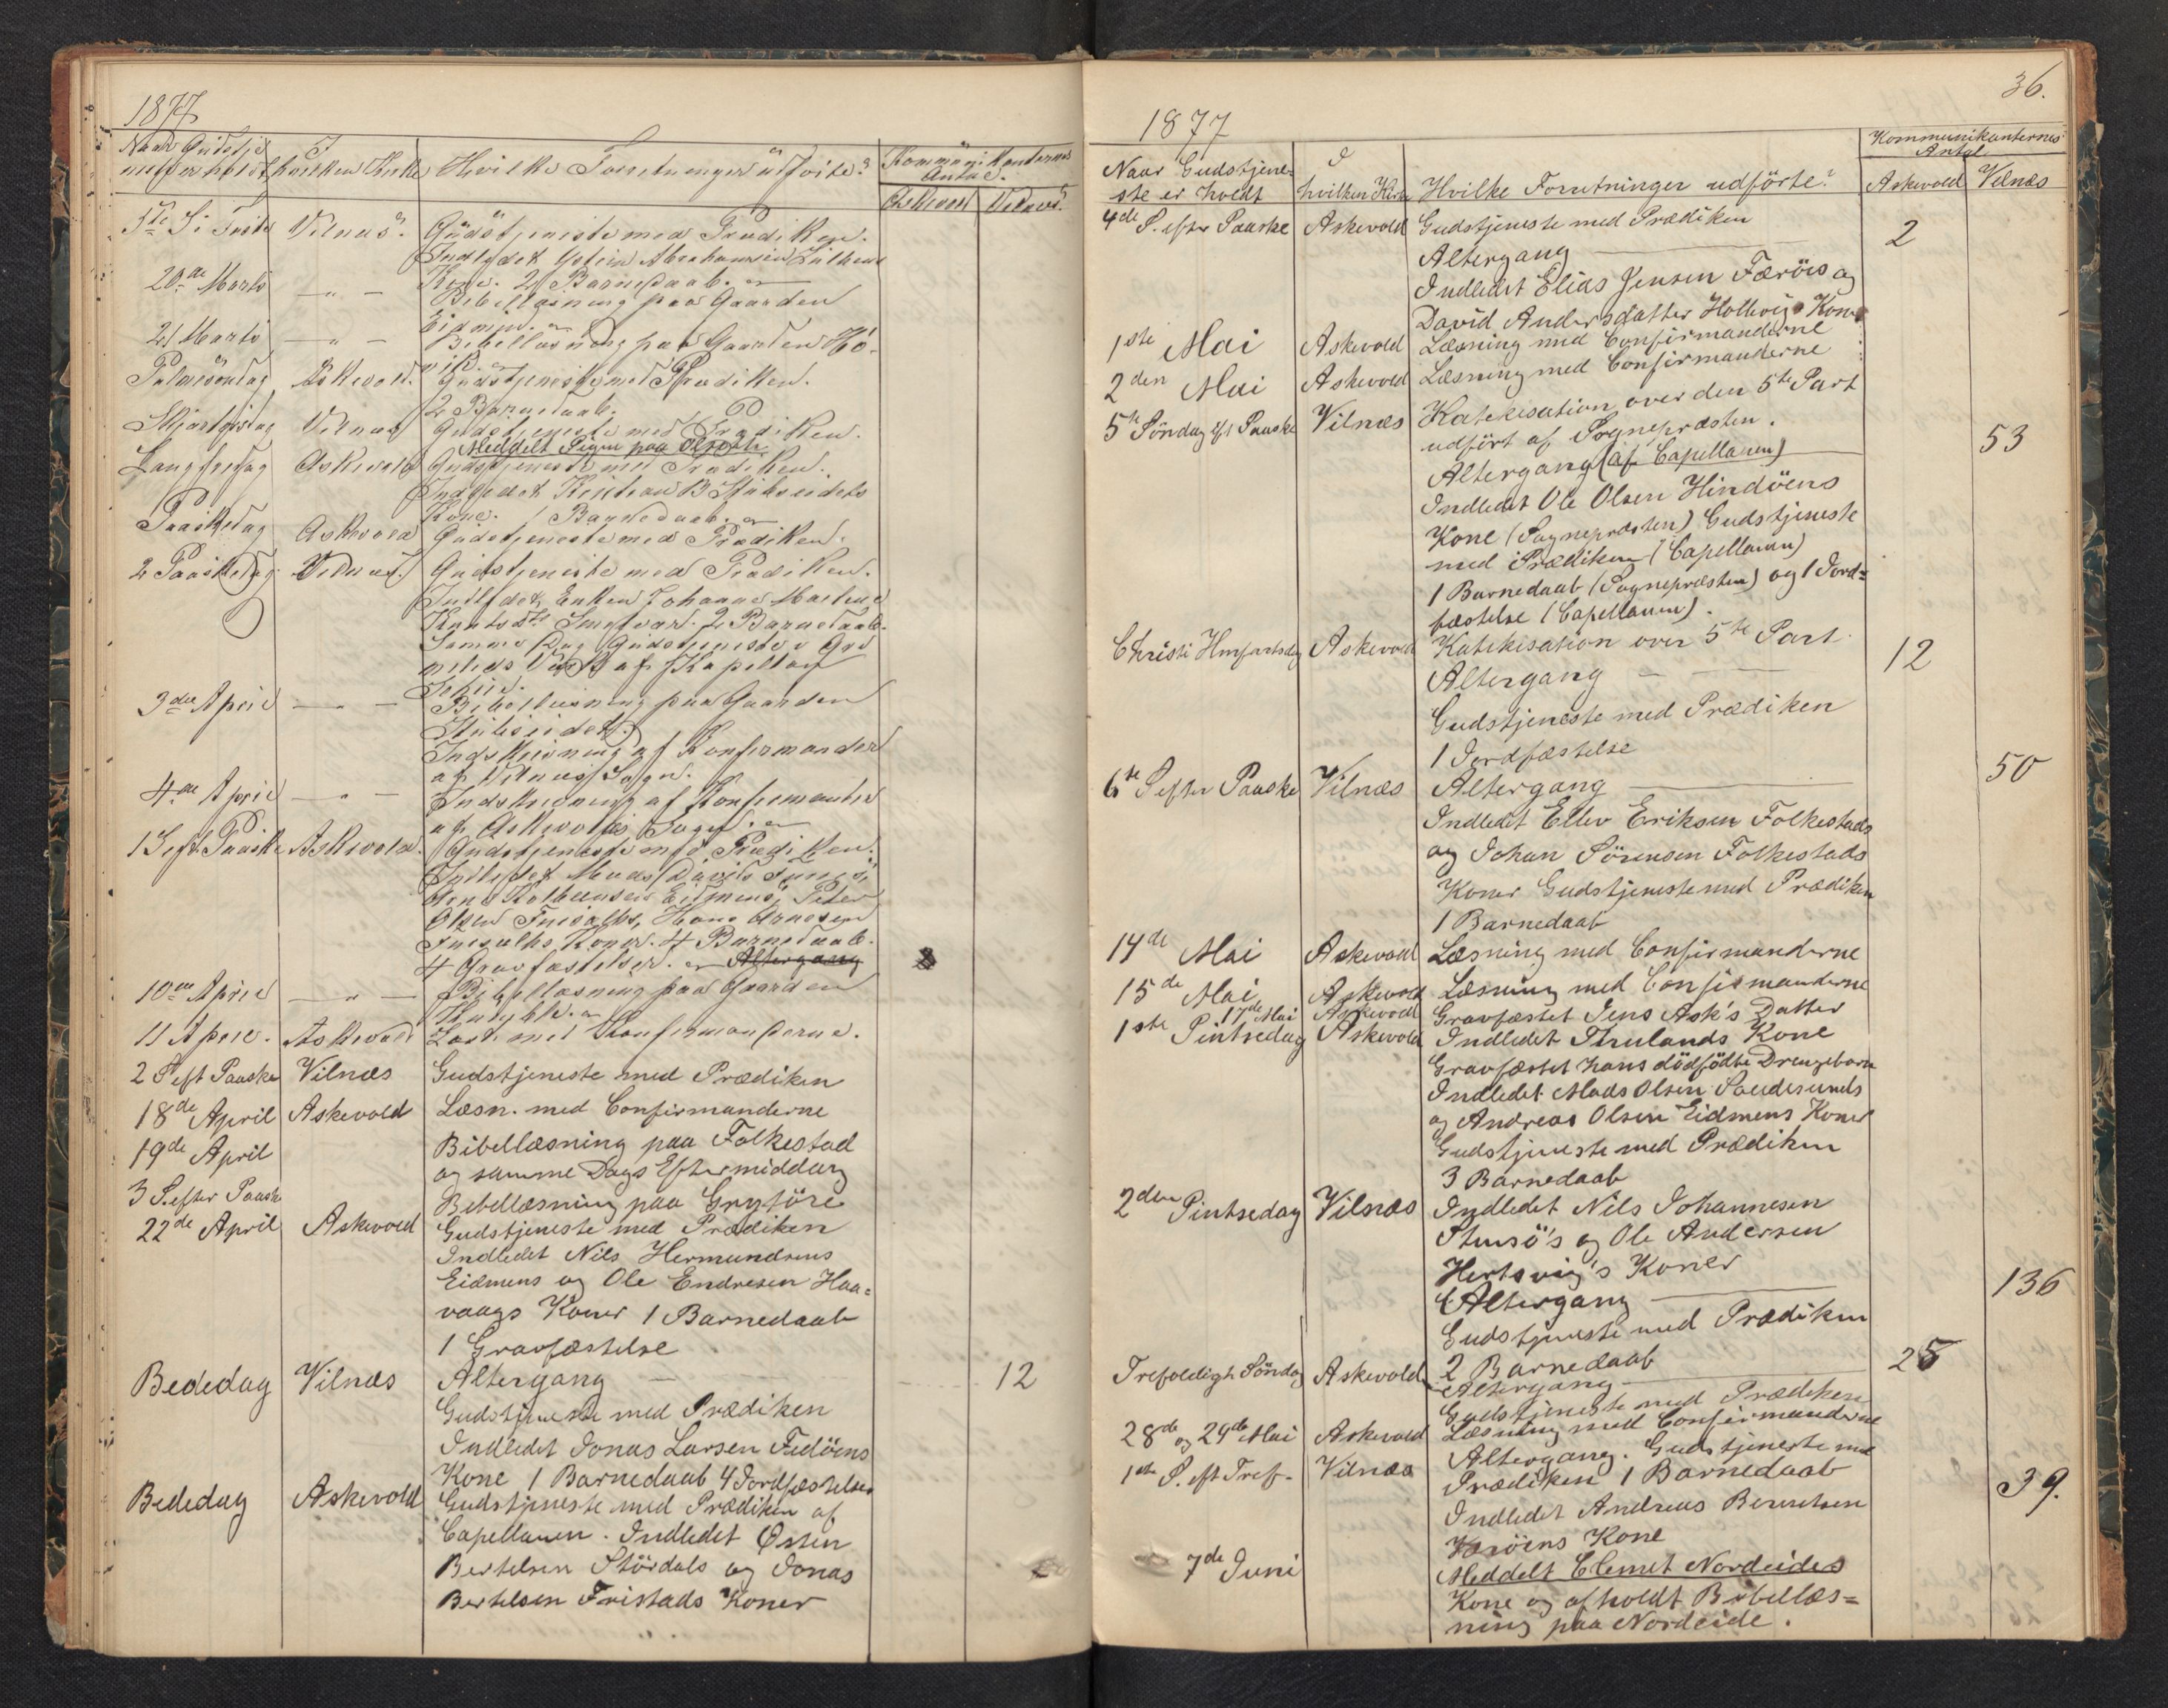 1877
Naar Gudstje I Kommunikanternes
nesten er holdt hvilken Kirke Hvilke Forretninger udförte? Antal.
Askevold Vilnæs
5te S. i Faste Vilnæs. Gudstjeneste med Prædiken.
Indledet Abrahamsen
Kone. 2 Barnedaab.
20de Marts — " — Bibellæsning paa Gaarden
Eidmun.
21 Marts — " — Bibellæsning paa Gaarden
Palmesöndag Askevold. Gudstjeneste med Prædiken.
2 Barnedaab.
Skjærtorsdag Vilnæs Gudstjeneste med Prædiken.
Meddelt Pigen paa
Langfredag Askevold Gudstjeneste med Prædiken.
Indledet B.
Kone. 1 Barnedaab.
Paaskedag Askevold Gudstjeneste med Prædiken.
2 Paaskedag Vilnæs. Gudstjeneste med Prædiken.
Indledet Enken Johanne
2 Barnedaab.
Samme Dag Gudstjeneste i
af Kapellan
3die April — " — Bibellæsning paa Gaarden
Stubseidet.
Indskrivning af Konfirmander
af Vilnæs Sogn.
4de April — " — Indskrivning af Konfirmander
af Askevolds Sogn.
1 S. eft. Paaske Askevold. Gudstjeneste med Prædiken.
Indledet Mads
Eidmuns, Peter
Olsen Hans Arnesen
Koner. 4 Barnedaab.
4 Gravfæstelser. Altergang
10de April — " — Bibellæsning paa Gaarden
11 April. Askevold Læst med Konfirmanderne.
2 S eft Paaske Vilnæs Gudstjeneste med Prædiken
18de April Askevold Læsn. med Confirmanderne
19de April Bibellæsning paa Folkestad
og samme Dags Eftermiddag
3 S. efter Paask Bibellæsning paa Grytöre
22de April Askevold Gudstjeneste med Prædiken
Indledet Nils Hermundsens
Eidmuns og Ole Endresen Haa=
vaags Koner 1 Barnedaab
1 Gravfæstelse
Bededag Vilnæs Altergang — 12
Gudstjeneste med Prædiken
Indledet Jonas Larsen Fedöens
Kone 1 Barnedaab 4 Jordfæstelser
Bededag Askevold Gudstjeneste med Prædiken af
Capellanen. Indledet Østen
Bertelsen Stördals og Jonas
Bertelsen Fristads Koner
36.
1877
Kommunikanternes
Antal
Naar Gudstjene- I
ste er holdt hvilken Kirke Hvilke Forretninger udförte? Askevold Vilnæs
4de S. efter Paaske Askevold Gudstjeneste med Prædiken
Altergang — 2
Indledet Elias Jensen Færöes og
David Andersdatter Hollevigs Kone
1ste Mai Askevold Læsning med Confirmanderne
2den Mai Askevold Læsning med Confirmanderne
5te Söndag eft Paaske Vilnæs Katekisation over den 5te Part
udfört af Sognepræsten.
Altergang (af Capellanen) — 53
Indledet Ole Olsen Hindöens
Kone (Sognepræsten) Gudstjeneste
med Prædiken (Capellanen)
1 Barnedaab (Sognepræsten) og 1 Jord=
fæstelse (Capellanen).
Christi Himfartsdag Askevold Katekisation over 5te Part
Altergang — 12
Gudstjeneste med Prædiken
1 Jordfæstelse
6te S efter Paaske Vilnæs Altergang — 50
Indledet Ellev Eriksen Folkestads
og Johan Sörensen Folkestads
Koner Gudstjeneste med Prædiken
1 Barnedaab
14de Mai Askevold Læsning med Confirmanderne
15de Mai Askevold Læsning med Confirmanderne
17de Mai Askevold Gravfæstet Jens Ask's Datter
1ste Pintsedag Askevold Indledet Thulands Kone
Gravfæstet hans dödfödte Drengebarn
Indledet Mads Olsen Saudesunds
og Andreas Olsen Eidmens Koner
Gudstjeneste med Prædiken
3 Barnedaab
2den Pintsedag Vilnæs Indledet Nils Johannesen
Stensö's og Ole Andersen
Hertsvig's Koner
Altergang — 136
Gudstjeneste med Prædiken
2 Barnedaab
Trefoldigh. Söndag Askevold Altergang — 25
Gudstjeneste med Prædiken
28de og 29de Mai Askevold Læsning med Confirmanderne
1ste S. eft Tref. Vilnæs Altergang. Gudstjeneste med
Prædiken 1 Barnedaab 39.
Indledet Andreas Berentsen
Væröens Kone
7de Juni Meddelt Clemet Nordeides
Kone og afholdt Bibellæs=
ning paa Nordeide.